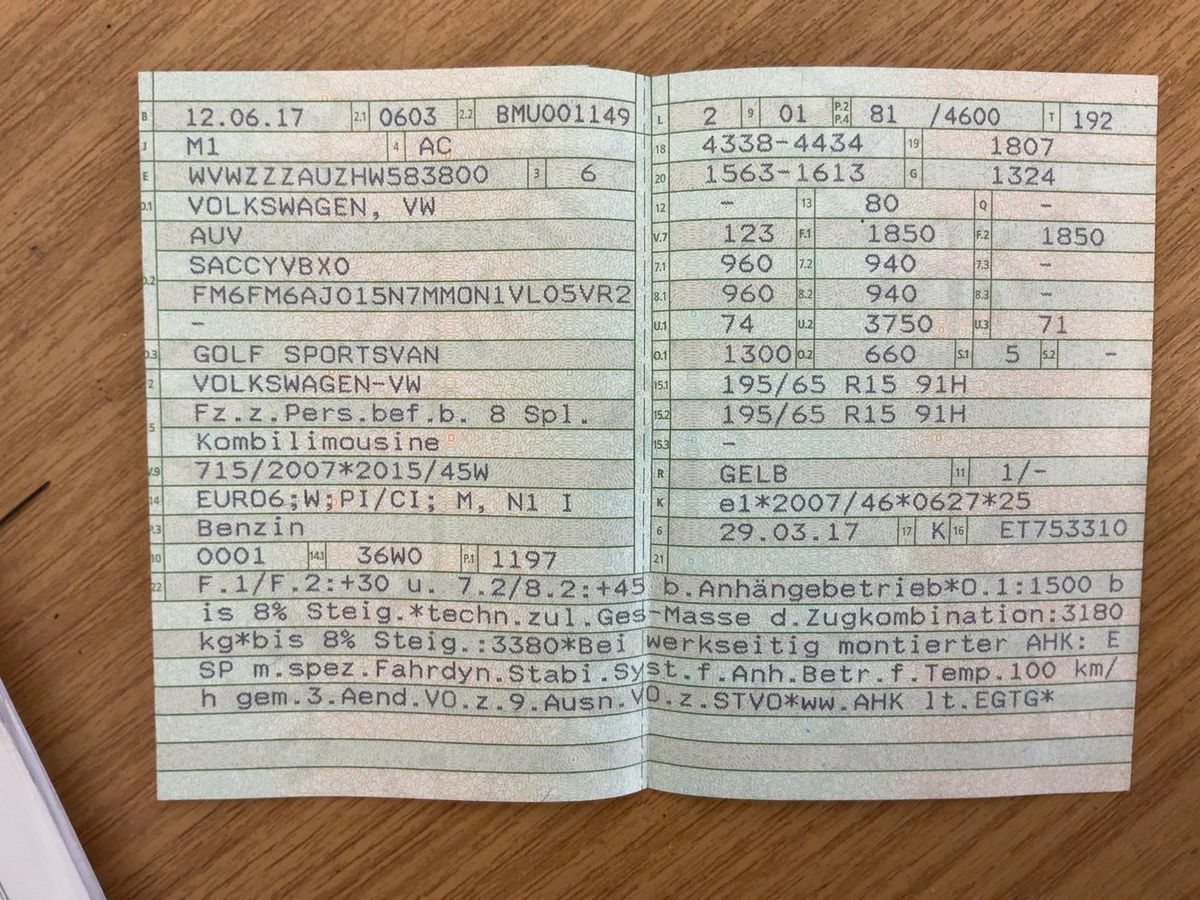 B 12.06.17 2.1 0603 2.2 BMU001149
J M1 4 AC
E WVWZZZAUZHW583800 3 6
D.1 VOLKSWAGEN, VW
AUV
SACCYVBX0
D.2 FM6FM6AJ015N7MMON1VL05VR2
–
D.3 GOLF SPORTSVAN
2 VOLKSWAGEN-VW
5 Fz.z.Pers.bef.b. 8 Spl.
Kombilimousine
V.9 715/2007*2015/45W
14 EURO6;W;PI/CI; M, N1 I
P.3 Benzin
10 0001 14.1 36W0 P.1 1197
L 2 9 01 P.2 P.4 81 /4600 T 192
18 4338-4434 19 1807
20 1563-1613 G 1324
12 – 13 80 Q –
V.7 123 F.1 1850 F.2 1850
7.1 960 7.2 940 7.3 –
8.1 960 8.2 940 8.3 –
U.1 74 U.2 3750 U.3 71
O.1 1300 O.2 660 S.1 5 S.2 –
15.1 195/65 R15 91H
15.2 195/65 R15 91H
15.3 –
R GELB 11 1/-
K e1*2007/46*0627*25
6 29.03.17 17 K 16 ET753310
21
22 F.1/F.2:+30 u. 7.2/8.2:+45 b.Anhängebetrieb*O.1:1500 b
is 8% Steig.*techn.zul.Ges-Masse d.Zugkombination:3180
kg*bis 8% Steig.:3380*Bei werkseitig montierter AHK: E
SP m.spez.Fahrdyn.Stabi.Syst.f.Anh.Betr.f.Temp.100 km/
h gem.3.Aend.VO.z.9.Ausn.VO.z.STVO*ww.AHK lt.EGTG*